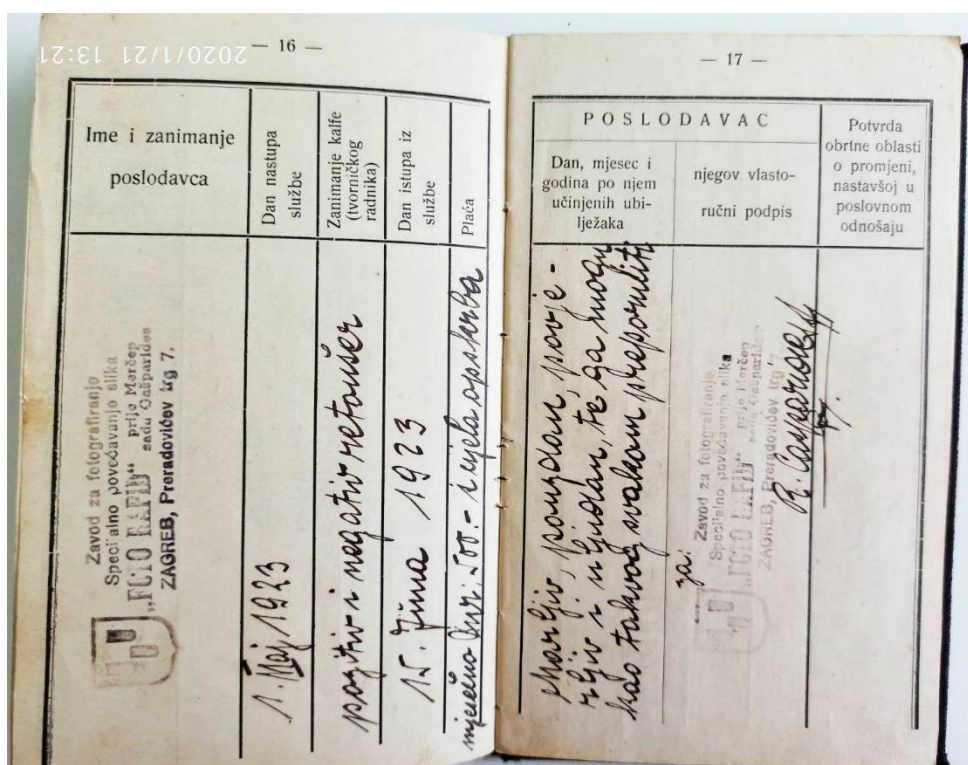 2020/1/21 13:21
— 16 —
Ime i zanimanje
poslodavca
Dan nastupa
službe
Zanimanje kalfe
(tvorničkog
radnika)
Dan istupa iz
službe
Plaća
Zavod za fotografiranje
Specijalno povećavanje slika
„FOTO RAPID“ prije Merćep
sada Gašparides
ZAGREB, Preradovićev trg 7.
1. Maj 1923
pozitiv i negativ retoušer
15. Juna 1923
mjesečno Kr. 500.- i cijela opskrba
— 17 —
POSLODAVAC
Dan, mjesec i
godina po njem
učinjenih ubi-
lježaka
njegov vlasto-
ručni podpis
Potvrda
obrtne oblasti
o promjeni,
nastavšoj u
poslovnom
odnošaju
Marljiv, pouzdan povje-
rljiv i uljudan, te ga mogu
kao takvog svakom preporučiti
za:
Zavod za fotografiranje
Specijalno povećavanje slika
„FOTO RAPID“ prije Merćep
sada Gašparides
ZAGREB, Preradovićev trg 7.